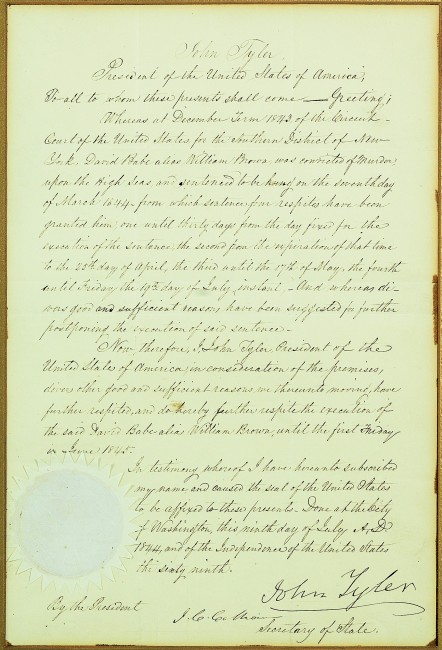 John Tyler,
President of the United States of America,
To all to whom these presents shall come — Greeting;
Whereas at December Term 1843 of the Circuit
Court of the United States for the Southern District of New
York. David Babe alias William Brown was convicted of Murder,
upon the High Seas, and sentenced to be hung on the seventh day
of March 1844 - from which sentence four respites have been
granted him, one until thirty days from the day fixed for the
execution of the sentence, the second from the expiration of that time
to the 23d day of April, the third until the 17th of May, the fourth
until Friday the 19th day of July instant - And whereas di-
vers good and sufficient reasons have been suggested for further
postponing the execution of said sentence -
Now, therefore, I, John Tyler, President of the
United States of America, in consideration of the premises,
divers other good and sufficient reasons me thereunto moving, have
further respited, and do hereby further respite the execution of
the said David Babe alias William Brown, until the first Friday
in June 1845.
In testimony whereof I have hereunto subscribed
my name and caused the seal of the United States
to be affixed to these presents. Done at the City
of Washington, this ninth day of July A.D.
1844, and of the Independence of the United States
the sixty ninth.
John Tyler
By the President
J. C. Calhoun
Secretary of State.